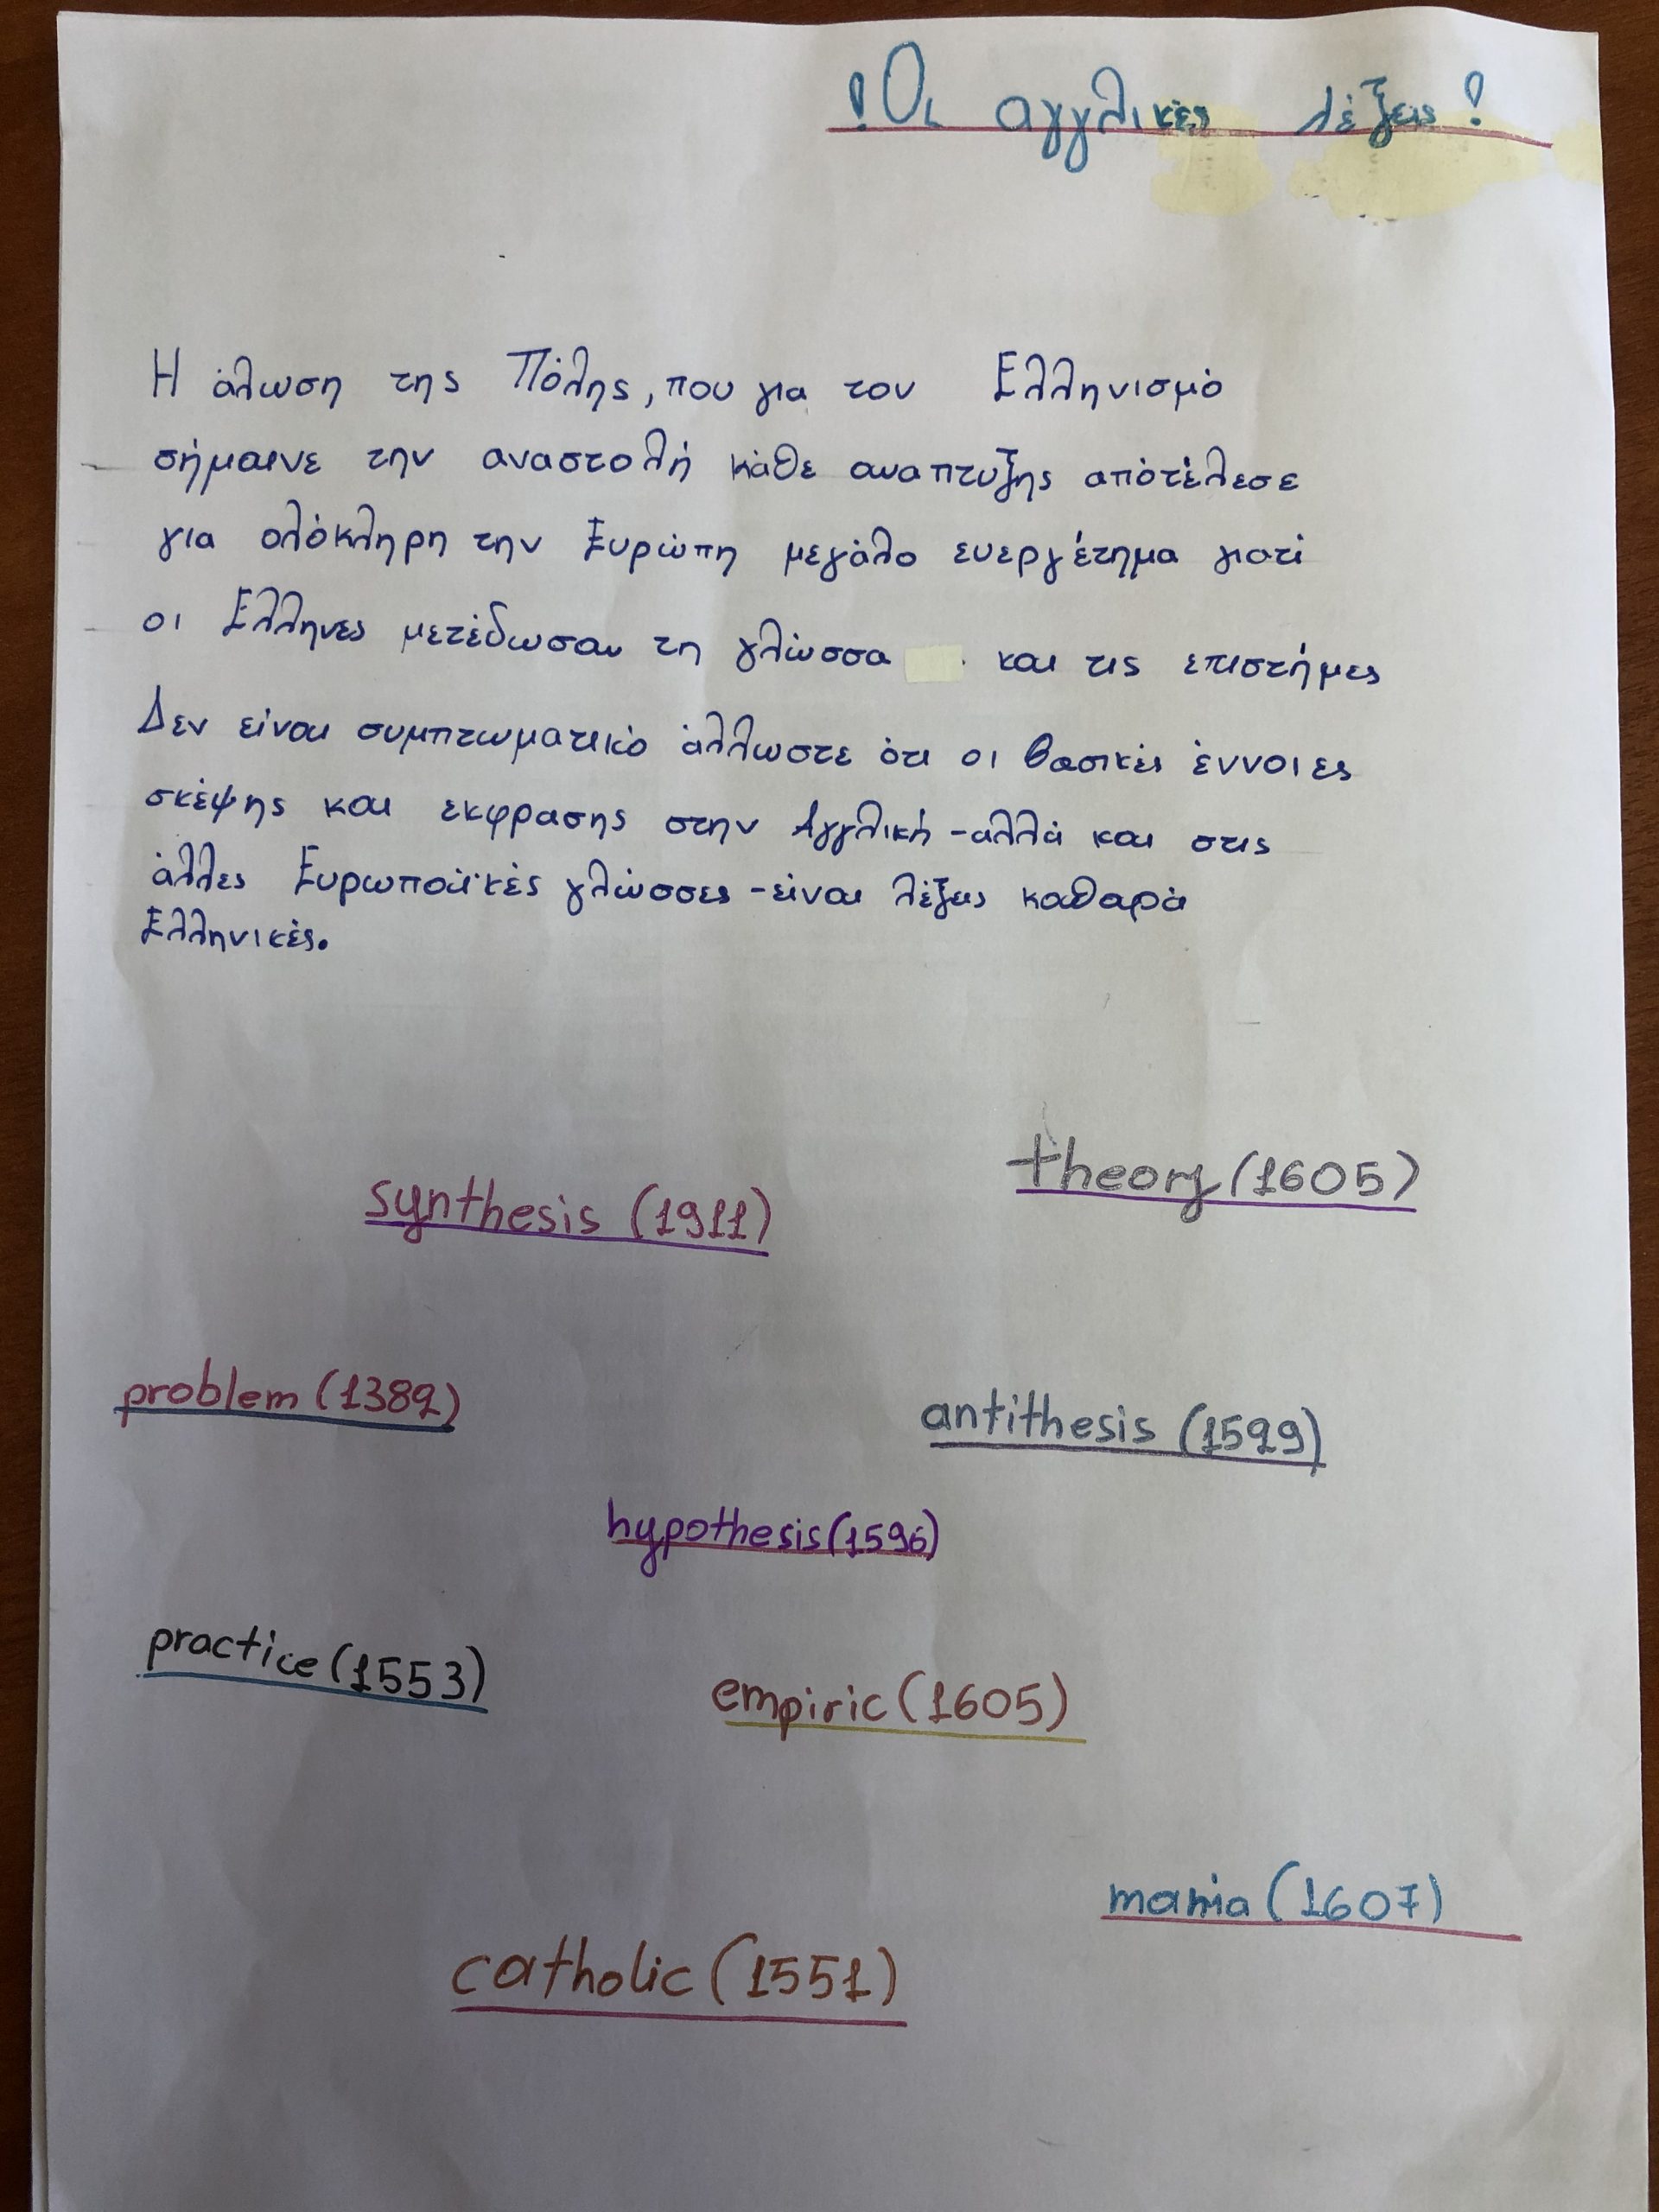 !Οι αγγλικές λέξεις!
Η άλωση της Πόλης, που για τον Ελληνισμό
σήμαινε την αναστολή κάθε αναπτυξης απότέλεσε
για ολόκληρη την Ευρώπη μεγάλο ευεργέτημα γιατί
οι Ελληνες μετέδωσαν τη γλώσσα και τις επιστήμες
Δεν είναι συμπτωματικό άλλωστε ότι οι βασικές έννοιες
σκέψης και εκφρασης στην Αγγλική -αλλά και στις
άλλες Ευρωπαϊκές γλώσσες -είναι λέξεις καθαρά
Ελληνικές.
theory (1605)
synthesis (1911)
problem (1382)
antithesis (1529)
hypothesis (1596)
practice (1553)
empiric (1605)
mania (1607)
catholic (1551)